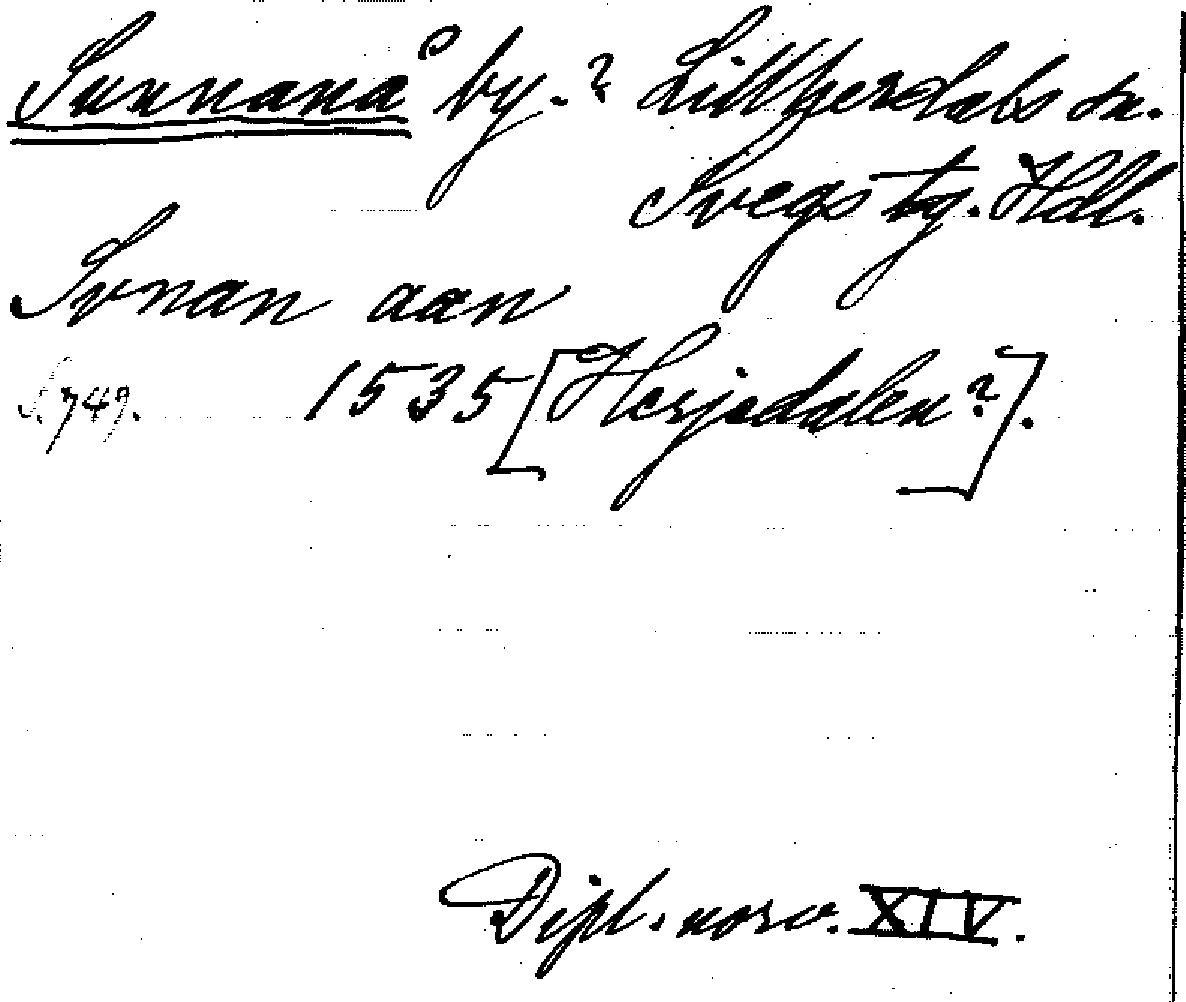 Sunnanå by.? Lillherdals sn.
Svegs tg. Hdl.
Svnan aan
S. 749. 1535 [Herjedalen?].
Dipl. norv. XIV.